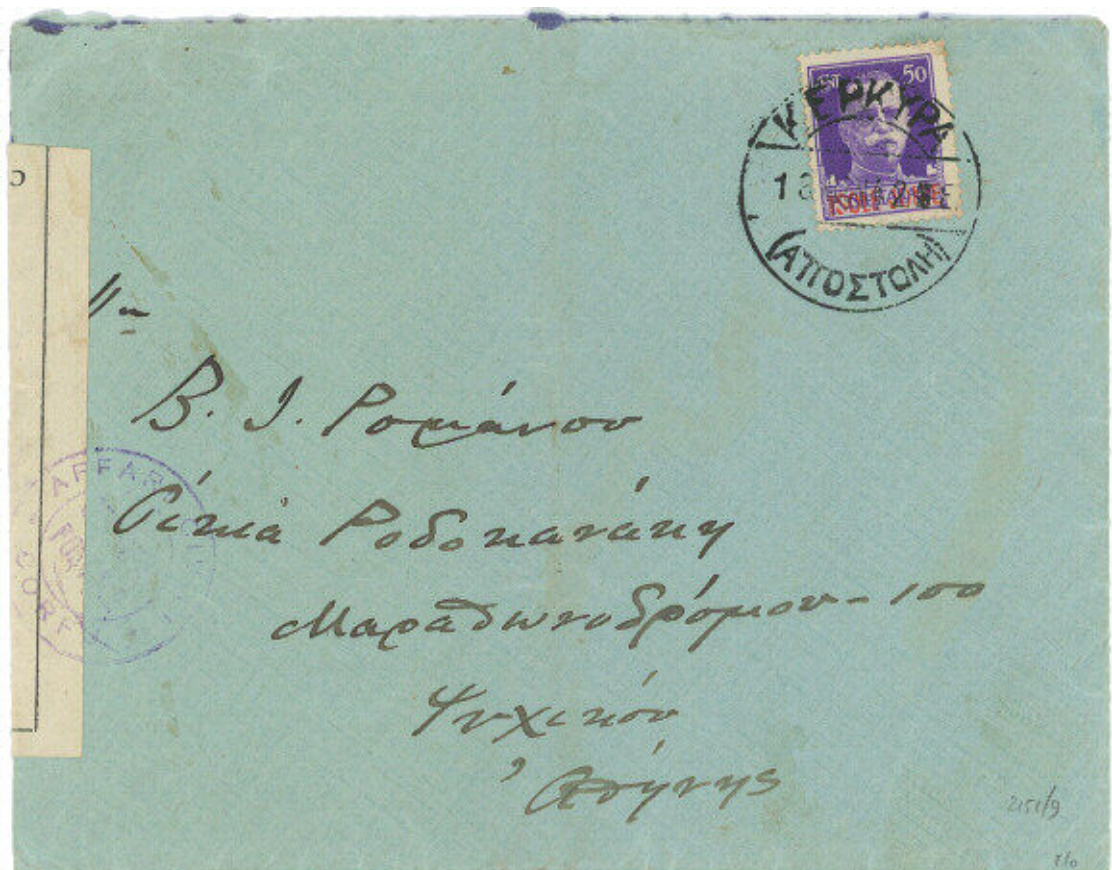 50
ΚΕΡΚΥΡΑ
ISOLE JONIE
(ΑΠΟΣΤΟΛΗ)
Β. Ι. Ρωμάνου
Οἰκία Ροδοκανάκη
Μαραθωνοδρόμου - 100
Ψυχικόν
Ἀθήνης
2151/9